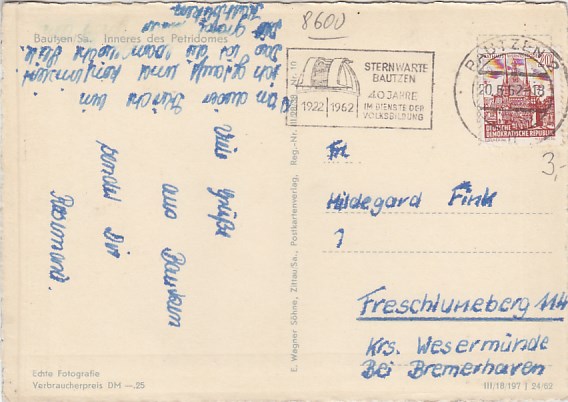 8600
Bautzen/Sa. Inneres des Petridomes
In dieser Kirche bin
ich getauft und konfirmiert
Das ist die
Der ganz
Viele Grüße
aus Bautzen
sendet Dir
Rosemarie
STERNWARTE
BAUTZEN
40 JAHRE
IM DIENSTE DER
VOLKSBILDUNG
1922 1962
BAUTZEN 2
20.6.62-18
DEUTSCHE
DEMOKRATISCHE REPUBLIK
3,-
Frl.
Hildegard Fink
Freschluneberg 114
Krs. Wesermünde
Bei Bremerhaven
E. Wagner Söhne, Zittau/Sa., Postkartenverlag, Reg.-Nr.
Echte Fotografie
Verbraucherpreis DM —.25
III/18/197 | 24/62